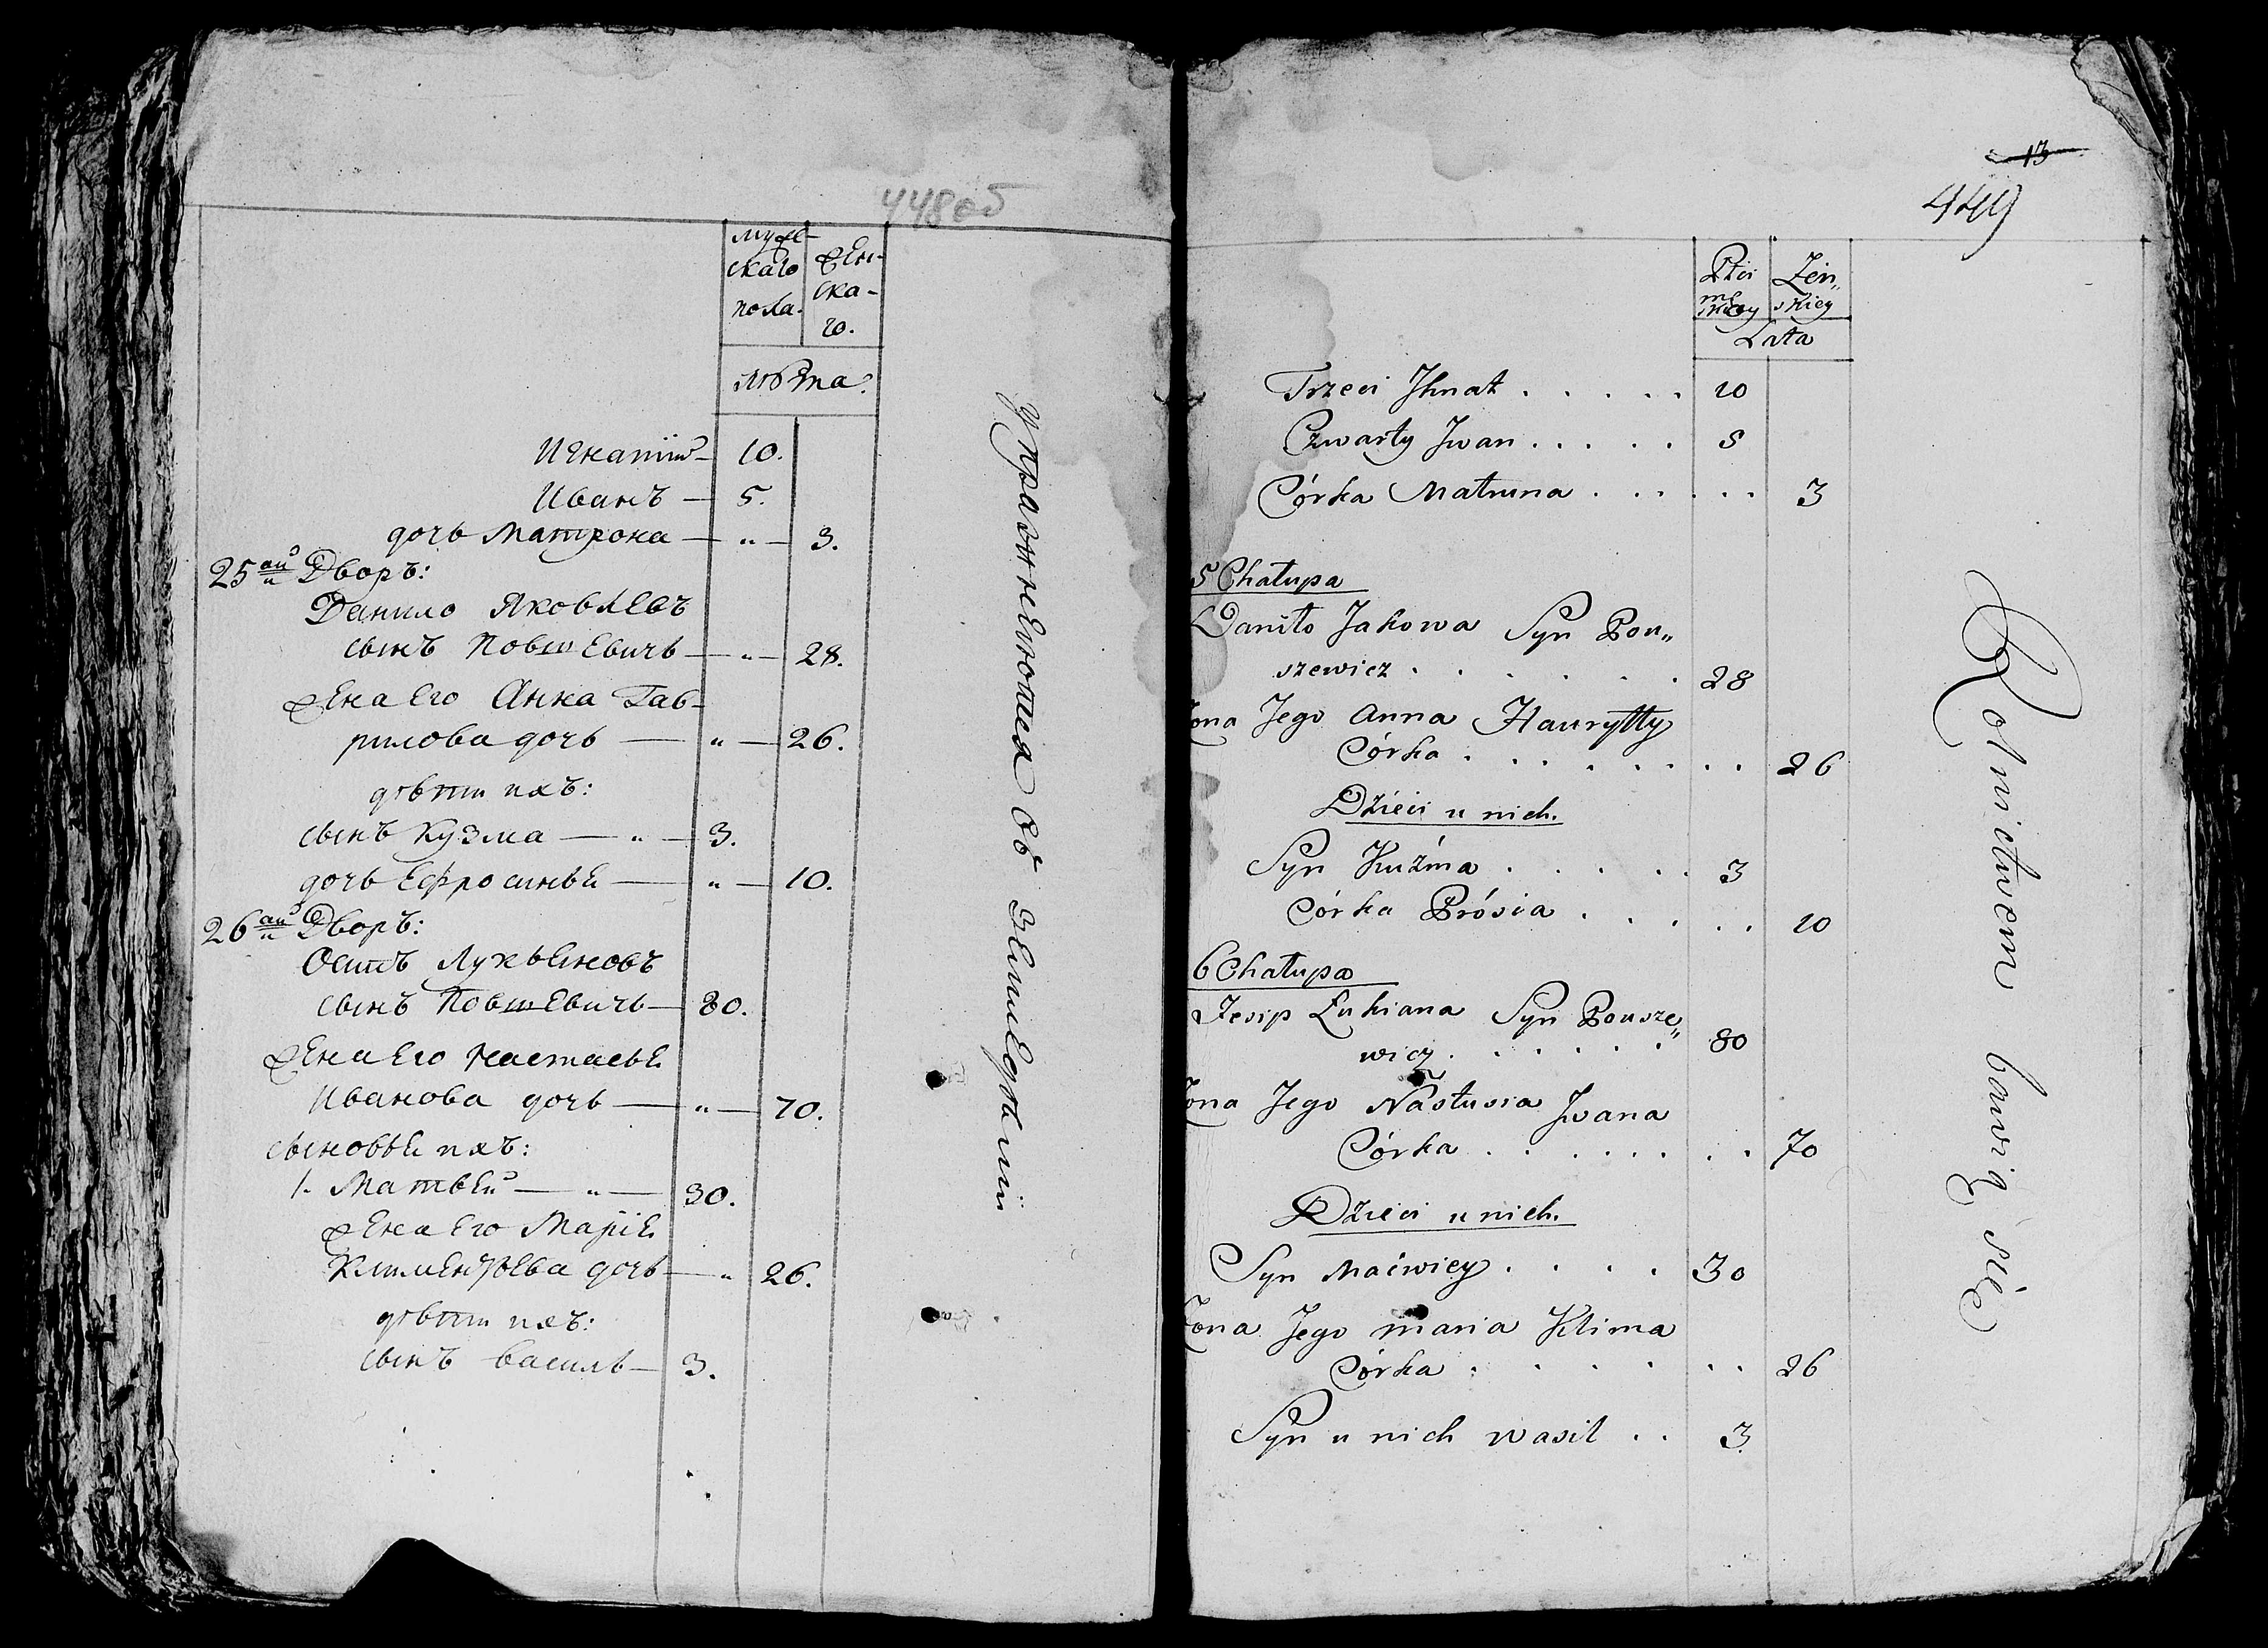 448об
муже-
скаго
пола.
жен-
ска-
го.
лѣта.
Игнатій — 10.
Иванъ — 5.
дочь Матрона — " — 3.
25ый Дворъ:
Данило Яковлевъ
сынъ Повшевичъ — " — 28.
жена Его Анна Гав-
рилова дочь — " — 26.
дѣти ихъ:
сынъ Кузма — " — 3.
дочь Ефросинья — " — 10.
26ый Дворъ:
Осипъ Лукьяновъ
сынъ Повшевичь — 80.
жена Его Настасья
Иванова дочь — " — 70.
сыновья ихъ:
1. Матвей — " — 30.
жена Его Марія
Климентьева дочь — " 26.
дѣти ихъ:
сынъ Василь — 3.
Упражняются въ земледѣліи
13
449
Płci
męskiey
Żeń„
skiey
Lata
Trzeci Ihnat . . . . . 10
Czwarty Jwan . . . . . 5
Córka Matruna . . . . . 3
5 Chałupa
Daniło Jakowa Syn Pow„
szewicz . . . . . . 28
żona Jego Anna Hauryłły
Córka . . . . . . . 26
Dzieci u nich.
Syn Kuźma . . . . . 3
Córka Prósia . . . . . 10
6 Chałupa
Jesip Łukiana Syn Powsze„
wicz . . . . . . 80
Żona Jego Nastusia Jwana
Córka . . . . . . . 70
Dzieci u nich.
Syn Maćwiey . . . . 30
Żona Jego Maria Klima
Córka . . . . . . . 26
Syn u nich Wasil . . 3
Rolnictwem bawią się